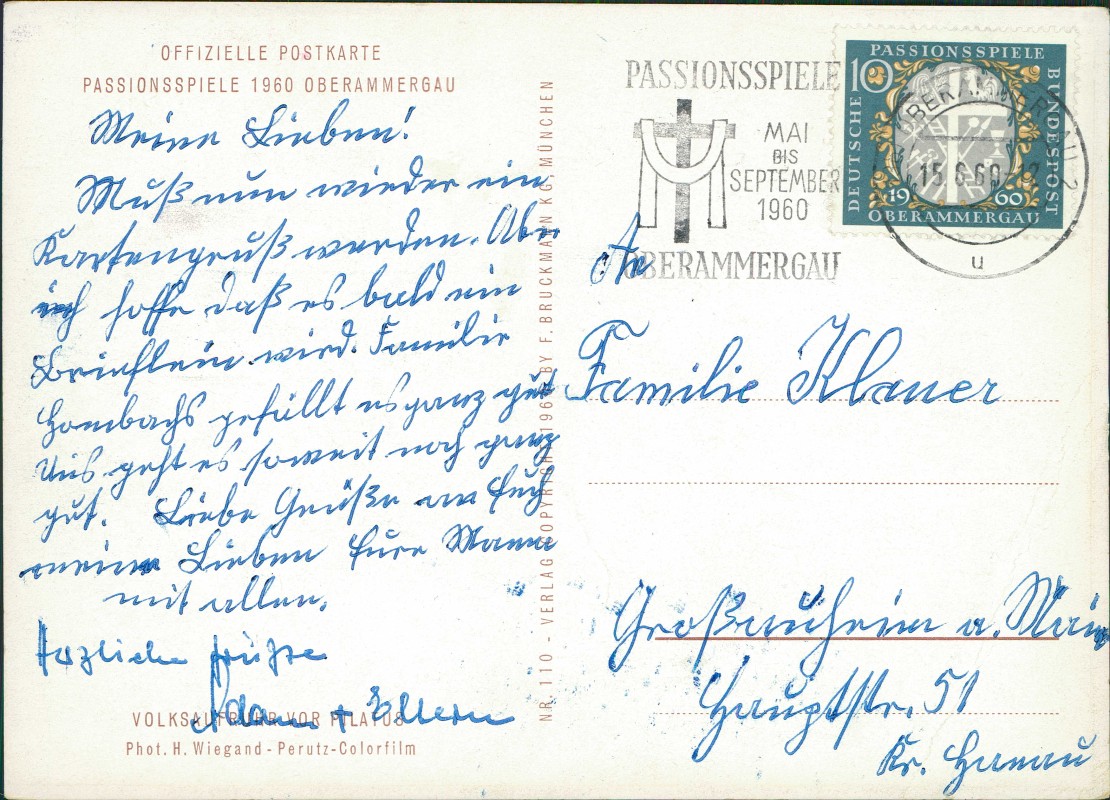 OFFIZIELLE POSTKARTE
PASSIONSSPIELE 1960 OBERAMMERGAU
Meine Lieben!
Muß nun wieder ein
Kartengruß werden. Aber
ich hoffe daß es bald ein
Brieflein wird. Familie
Hombachs gefällt es ganz gut.
Uns geht es soweit noch ganz
gut. Liebe Grüße an Euch
meine Lieben Eure Mama
mit allen.
Herzliche Grüße
Adam + Eltern
VOLKSAUFRUHR VOR PILATUS
Phot. H. Wiegand - Perutz-Colorfilm
NR 110 - VERLAG COPYRIGHT 1960 BY F. BRUCKMANN KG. MÜNCHEN
PASSIONSSPIELE
MAI
BIS
SEPTEMBER
1960
OBERAMMERGAU
PASSIONSSPIELE
10
DEUTSCHE
BUNDESPOST
1960
OBERAMMERGAU
OBERAMMERGAU 2
15.6.60
u
An
Familie Klauer
Großauheim a. Main
Hauptstr. 51
Kr. Hanau